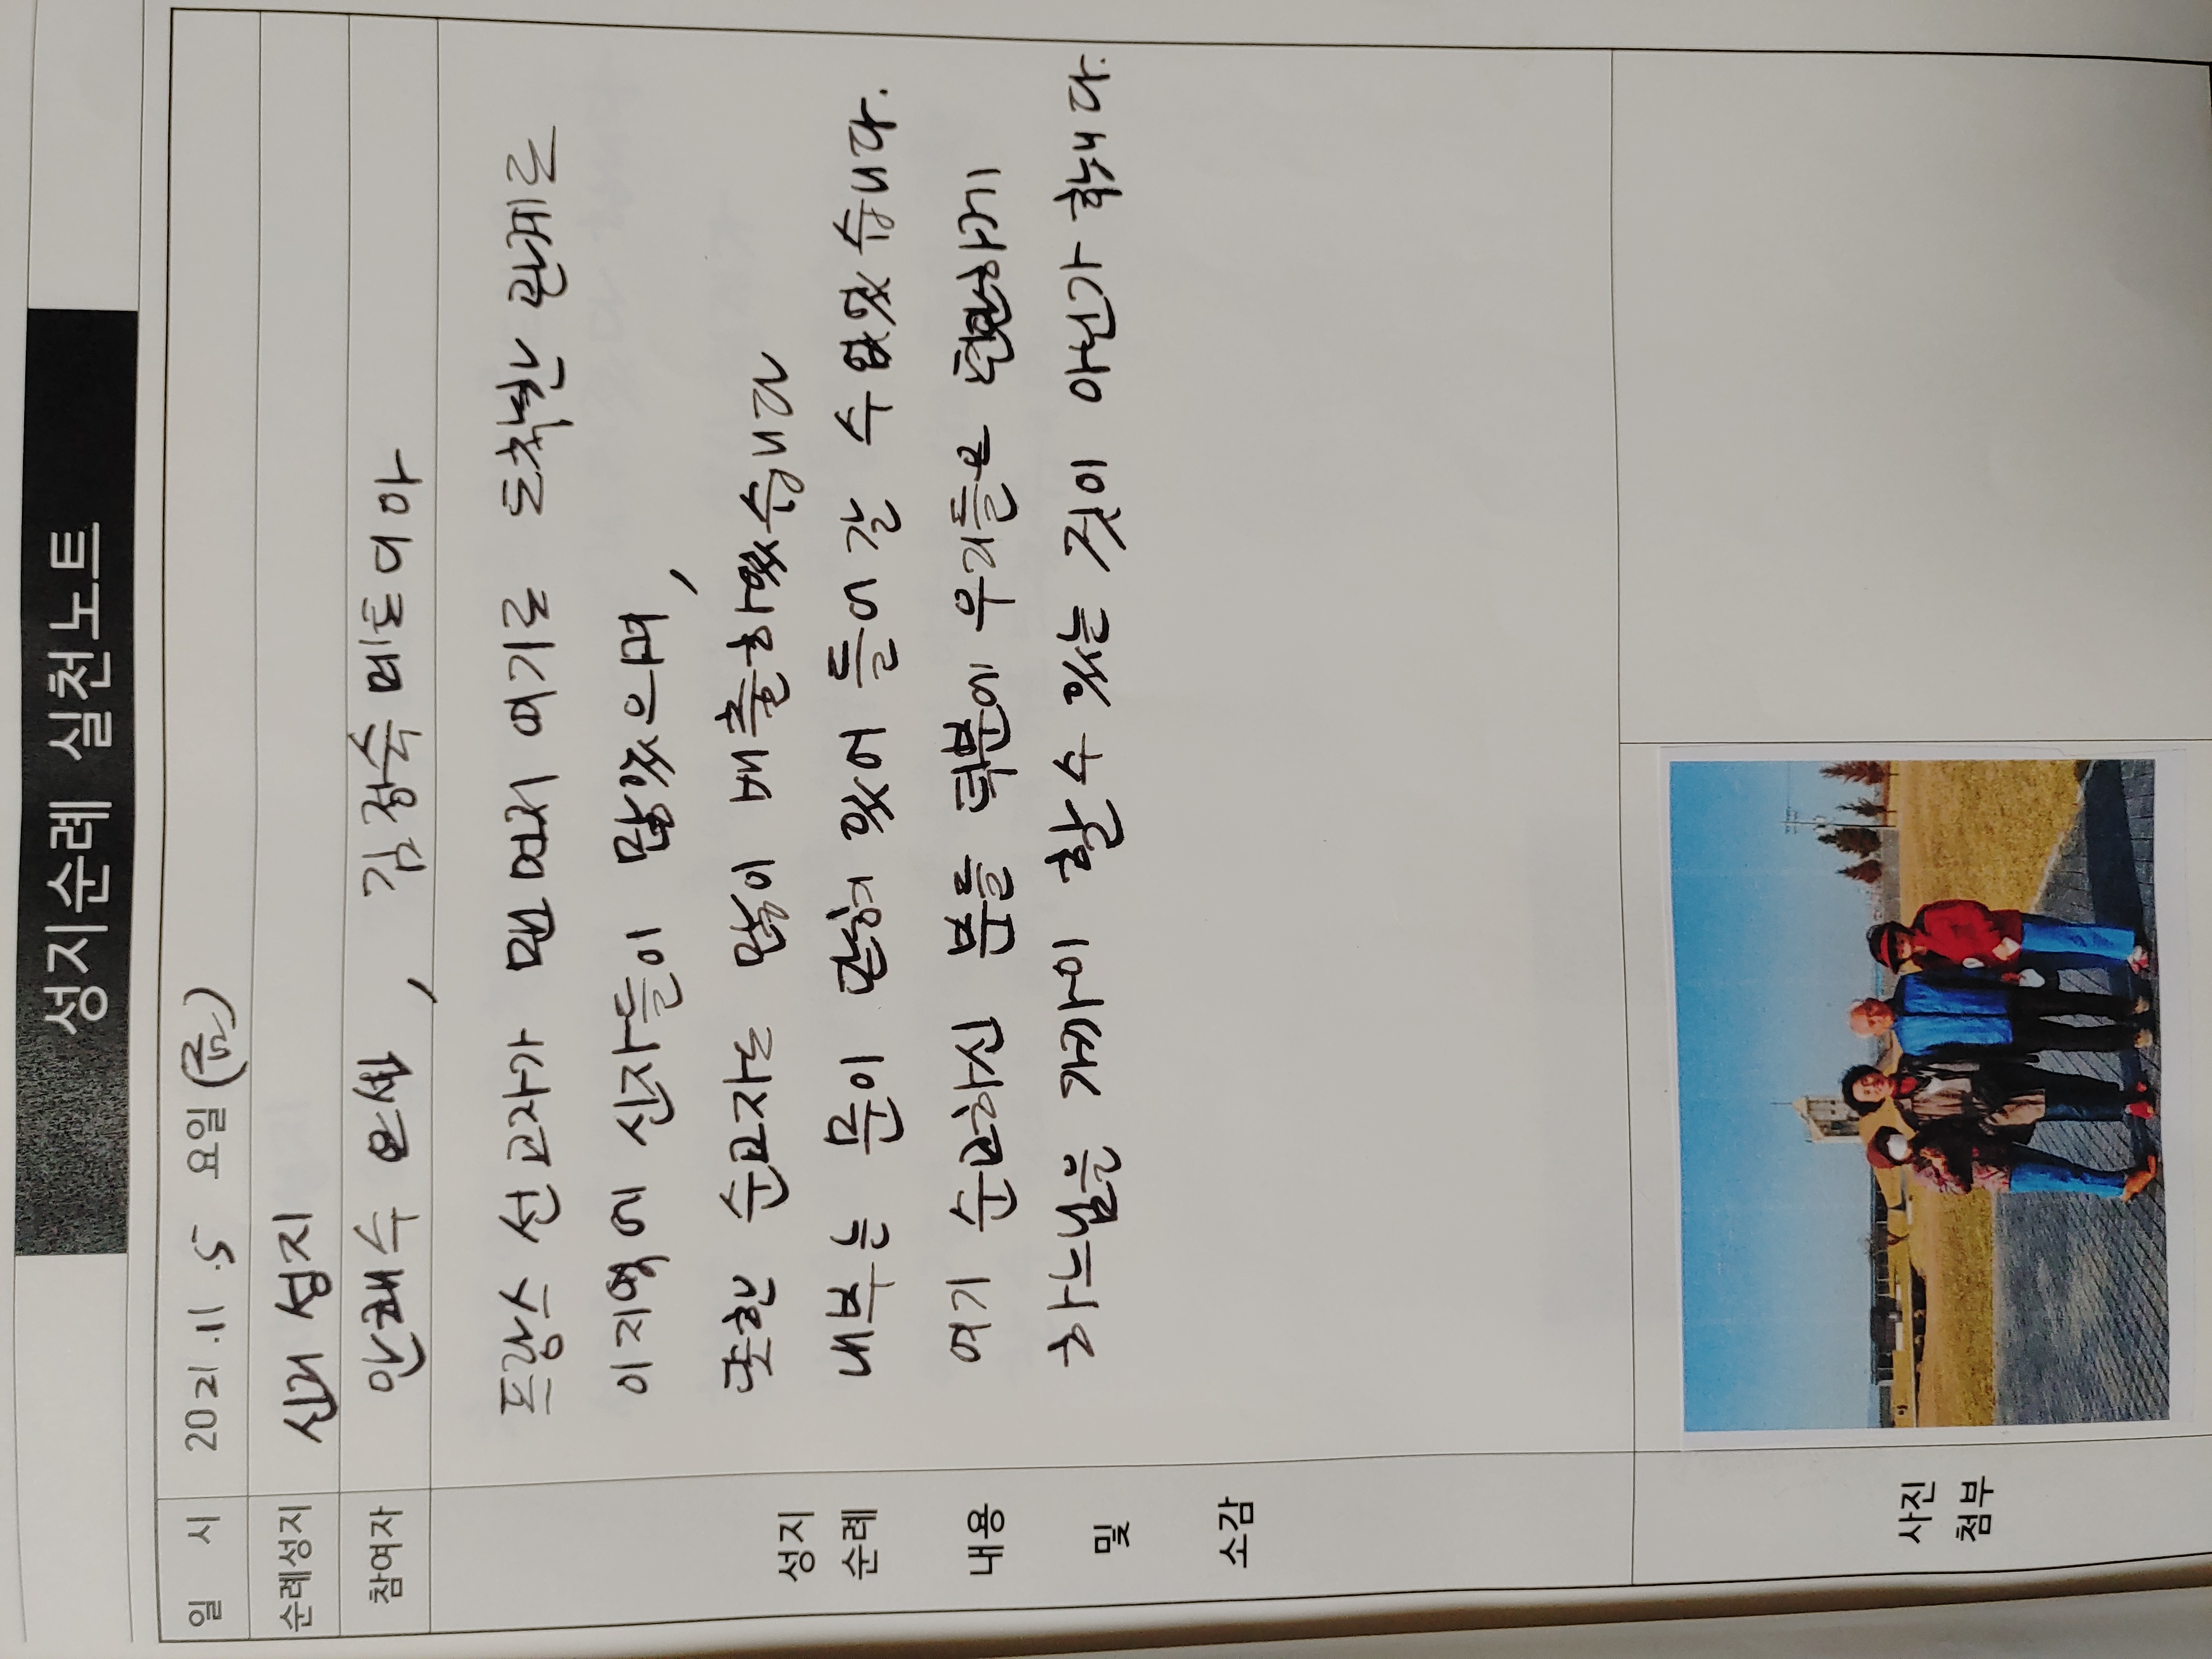 성지순례 실천노트
일 시 2021.11.5 요일(금)
순례성지 신리 성지
참여자 안해수 요셉, 김정숙 메토디아
프랑스 선교자가 맨 먼저 여기로 도착한 관계로
이지역에 신자들이 많았으며,
또한 순교자도 많이 배출하였습니다
내부는 문이 닫혀 있어 들어 갈 수 없었습니다.
여기 순교하신 분들 덕분에 우리들은 편안하게
하느님을 가까이 할 수 있는 것이 아닌가 합니다.
성지
순례
내용
및
소감
사진
첨부